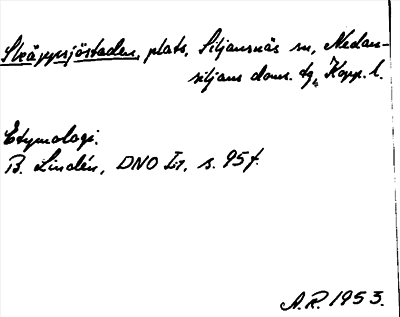 Skäppsjöstaden, plats, Siljansnäs sn, Nedan-
siljans doms. tg, Kopp. l.
Etymologi.
B. Lindén, DNO I:1, s. 95 f.
A.R. 1953.